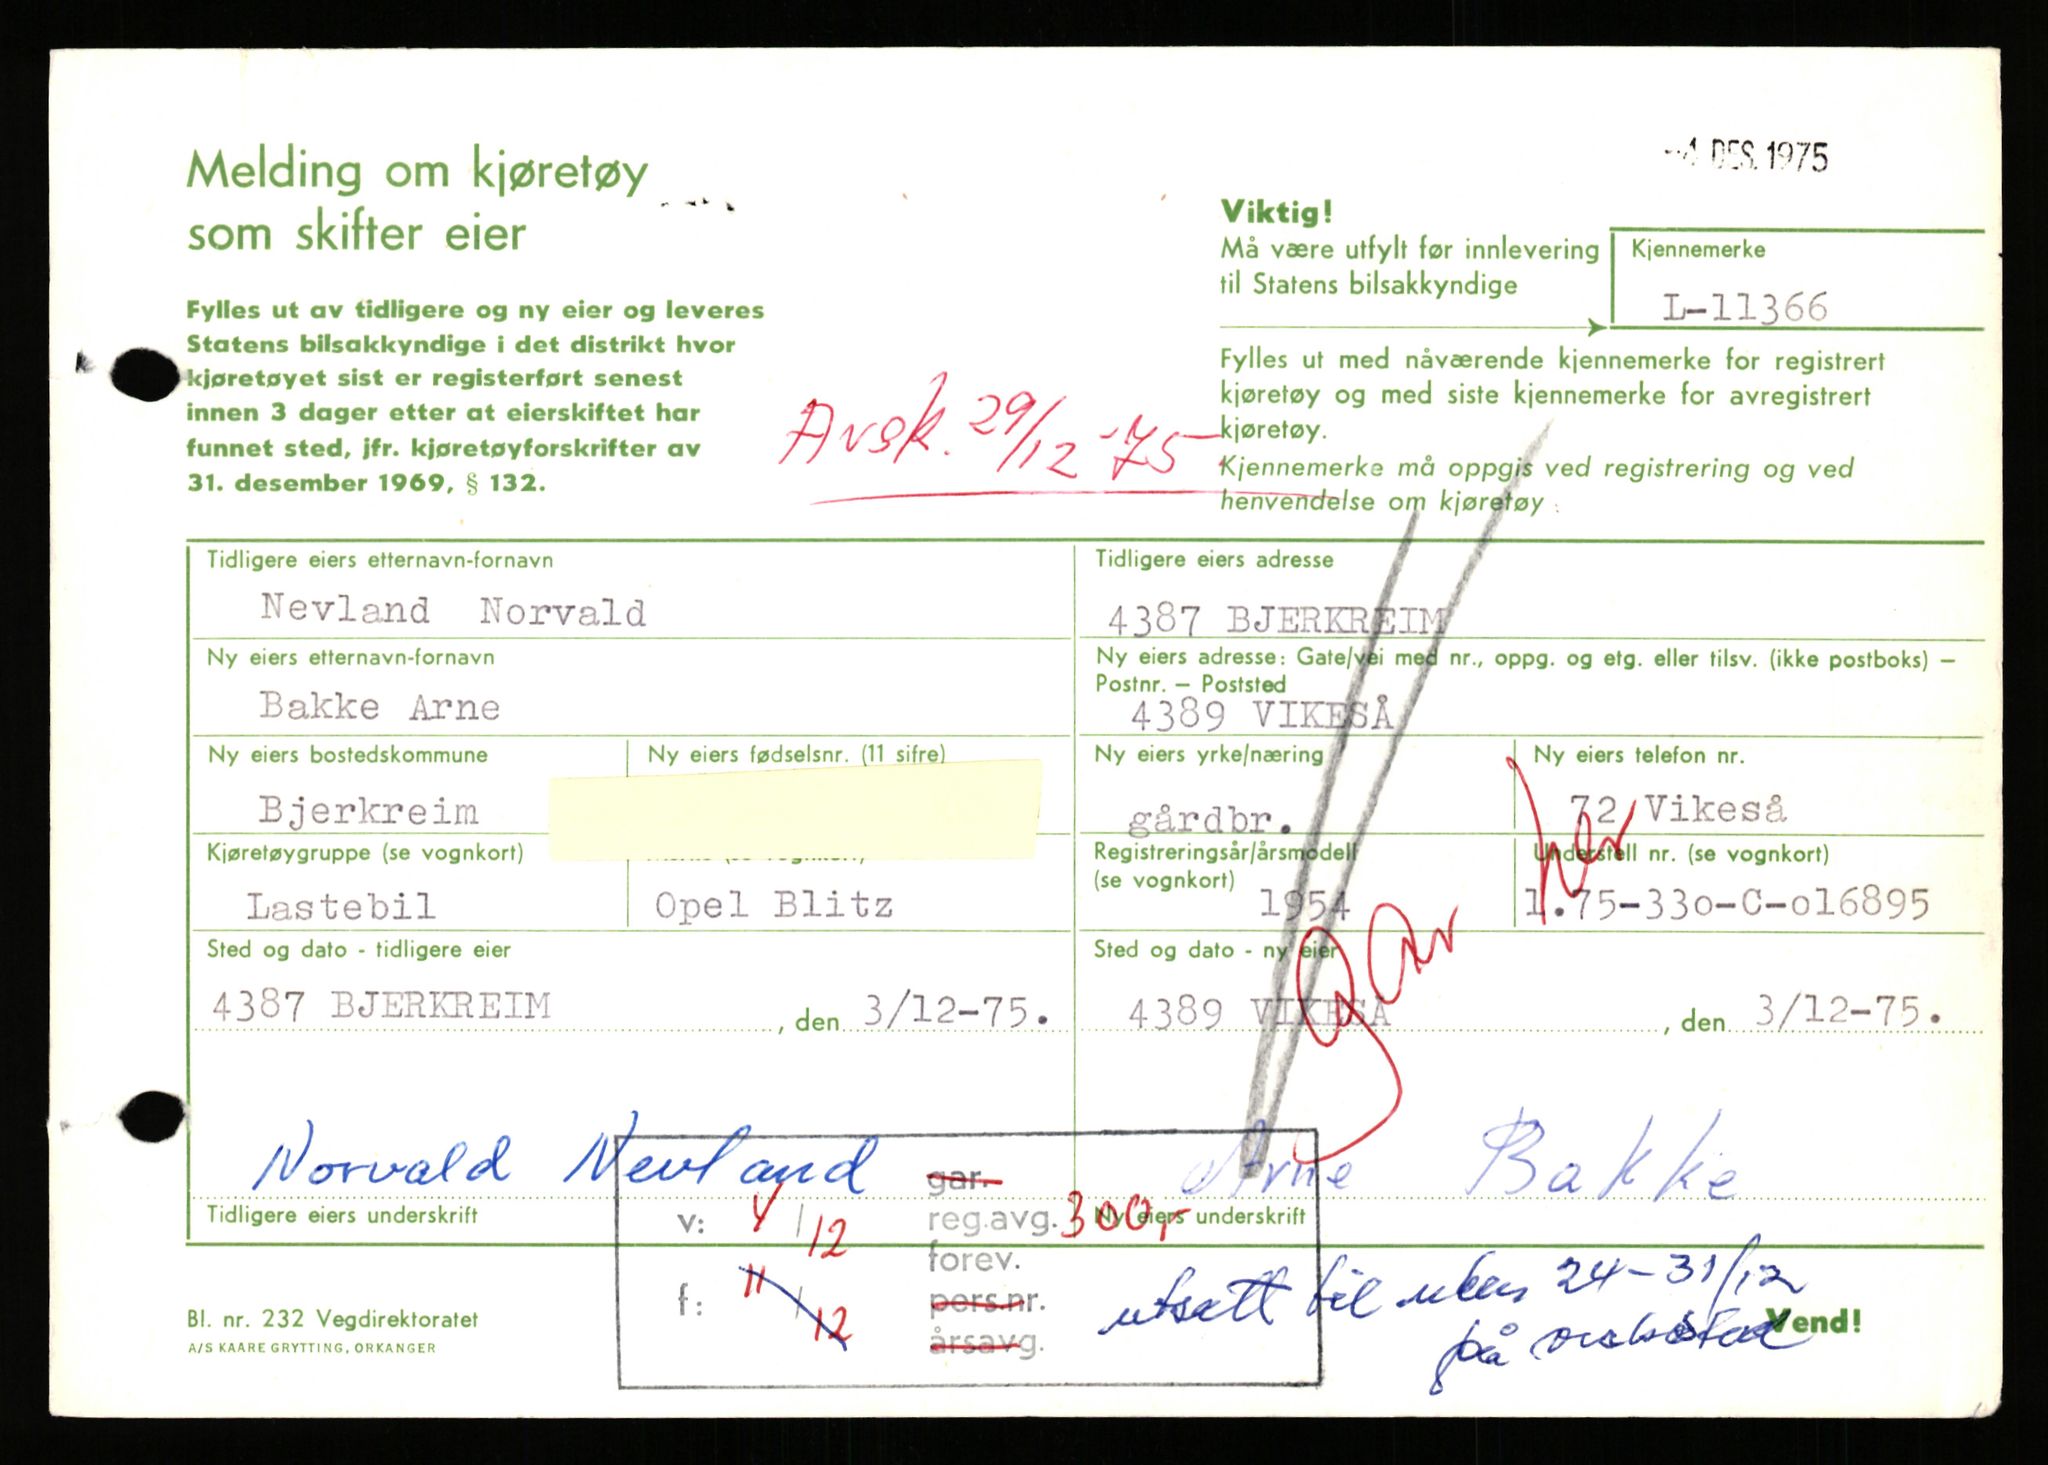 -4 DES. 1975
Melding om kjøretøy
som skifter eier
Fylles ut av tidligere og ny eier og leveres
Statens bilsakkyndige i det distrikt hvor
kjøretøyet sist er registerført senest
innen 3 dager etter at eierskiftet har
funnet sted, jfr. kjøretøyforskrifter av
31. desember 1969, § 132.
Avsk. 29/12-75
Viktig!
Må være utfylt før innlevering
til Statens bilsakkyndige
Kjennemerke
L-11366
Fylles ut med nåværende kjennemerke for registrert
kjøretøy og med siste kjennemerke for avregistrert
kjøretøy.
Kjennemerke må oppgis ved registrering og ved
henvendelse om kjøretøy.
Tidligere eiers etternavn-fornavn
Nevland Norvald
Tidligere eiers adresse
4387 BJERKREIM
Ny eiers etternavn-fornavn
Bakke Arne
Ny eiers adresse: Gate/vei med nr., oppg. og etg. eller tilsv. (ikke postboks) –
Postnr. – Poststed
4389 VIKESÅ
Ny eiers bostedskommune
Bjerkreim
Ny eiers fødselsnr. (11 sifre)
Ny eiers yrke/næring
gårdbr.
Ny eiers telefon nr.
72 Vikeså
Kjøretøygruppe (se vognkort)
Lastebil
Opel Blitz
Registreringsår/årsmodell
(se vognkort)
1954
Understell nr. (se vognkort)
1.75-33o-C-o16895
gar her
Sted og dato - tidligere eier
4387 BJERKREIM, den 3/12-75.
Sted og dato - ny eier
4389 VIKESÅ, den 3/12-75.
Norvald Nevland
Arne Bakke
Tidligere eiers underskrift
Ny eiers underskrift
gar.
v: 4/12 reg.avg. 300,-
forev.
f: 11/12 pers.nr.
årsavg.
utsatt til uken 24-31/12
på
Bl. nr. 232 Vegdirektoratet
A/S KAARE GRYTTING, ORKANGER
Vend!